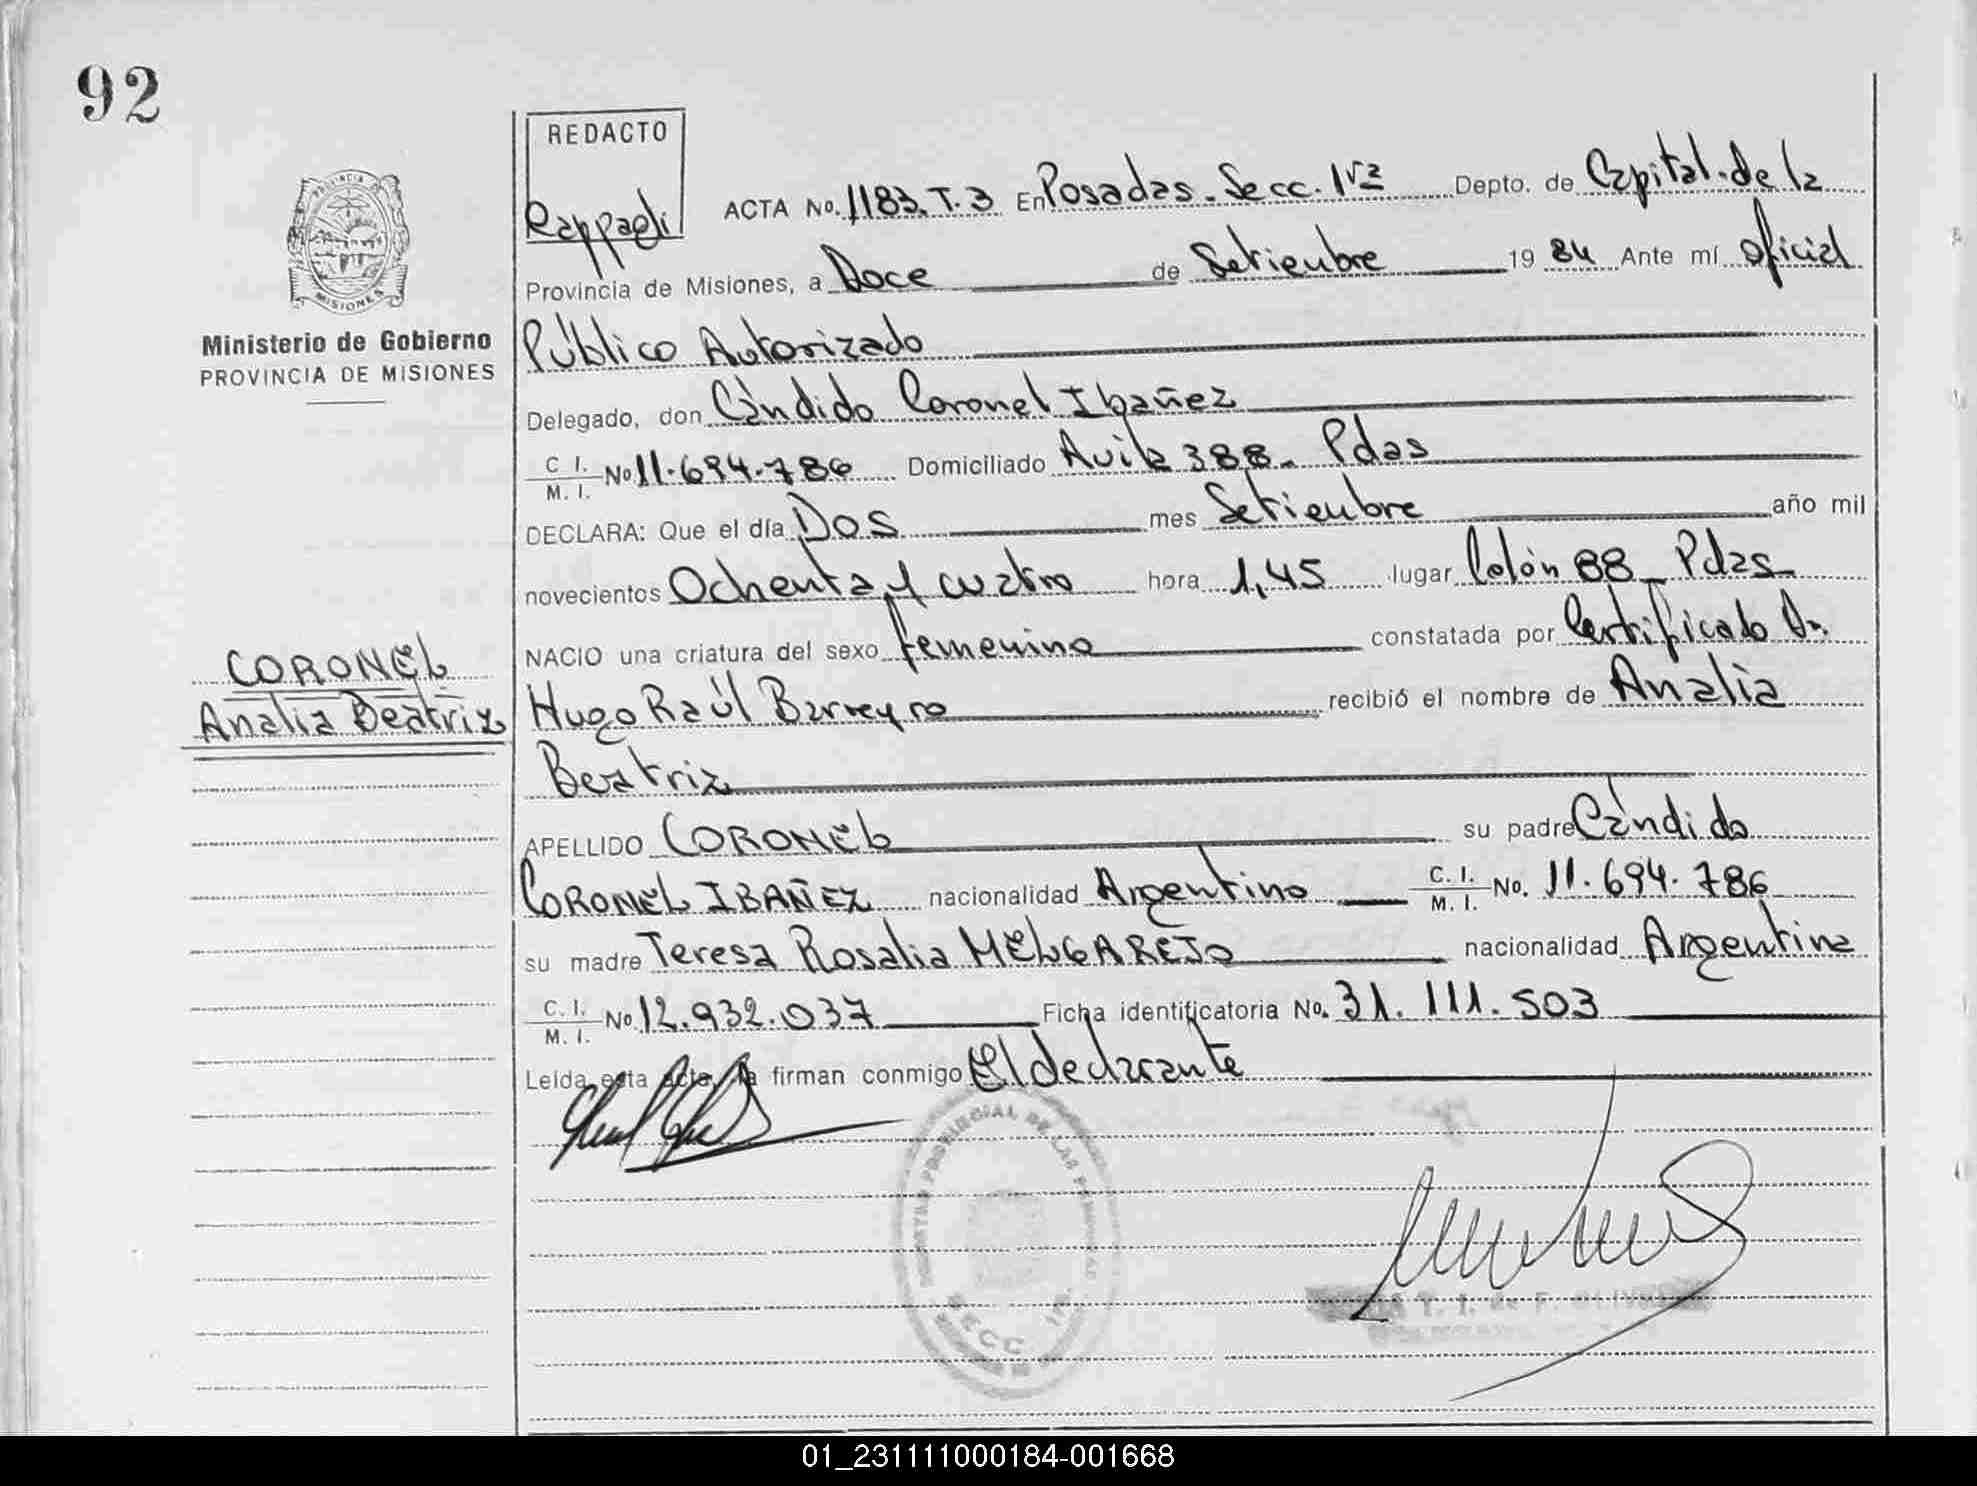 92
REDACTO
Rappagli
ACTA No. 1183.T.3 En Posadas. Secc. 1ra Depto. de Capital de la
Provincia de Misiones, a Doce de Setiembre 19 84 Ante mí oficial
Público Autorizado
Delegado, don Cándido Coronel Ibañez
C. I. M. I. No 11.694.786 Domiciliado Avila 388_ Pdas
DECLARA: Que el día Dos mes Setiembre año mil
novecientos Ochenta y cuatro hora 1,45 lugar Colón 88_ Pdas_
NACIO una criatura del sexo femenino constatada por Certificado Dr.
Hugo Raúl Barreyro recibió el nombre de Analia
Beatriz
APELLIDO CORONEL su padre Cándido
CORONEL IBAÑEZ nacionalidad Argentino C. I. M. I. No. 11.694.786
su madre Teresa Rosalia MELGAREJO nacionalidad Argentina
C. I. M. I. No 12.932.037 Ficha identificatoria No. 31.111.503
Leída esta acta, la firman conmigo El declarante
PROVINCIA DE
MISIONES
Ministerio de Gobierno
PROVINCIA DE MISIONES
CORONEL
Analia Beatriz
PROVINCIAL DE LAS
SECC. 1ra
T. I. de F.
01_231111000184-001668